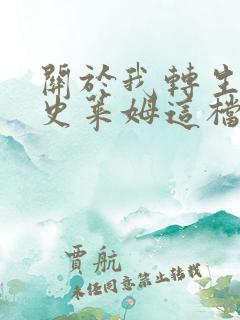 關於我轉生
史萊姆這檔
賈航
未經同意禁止轉載